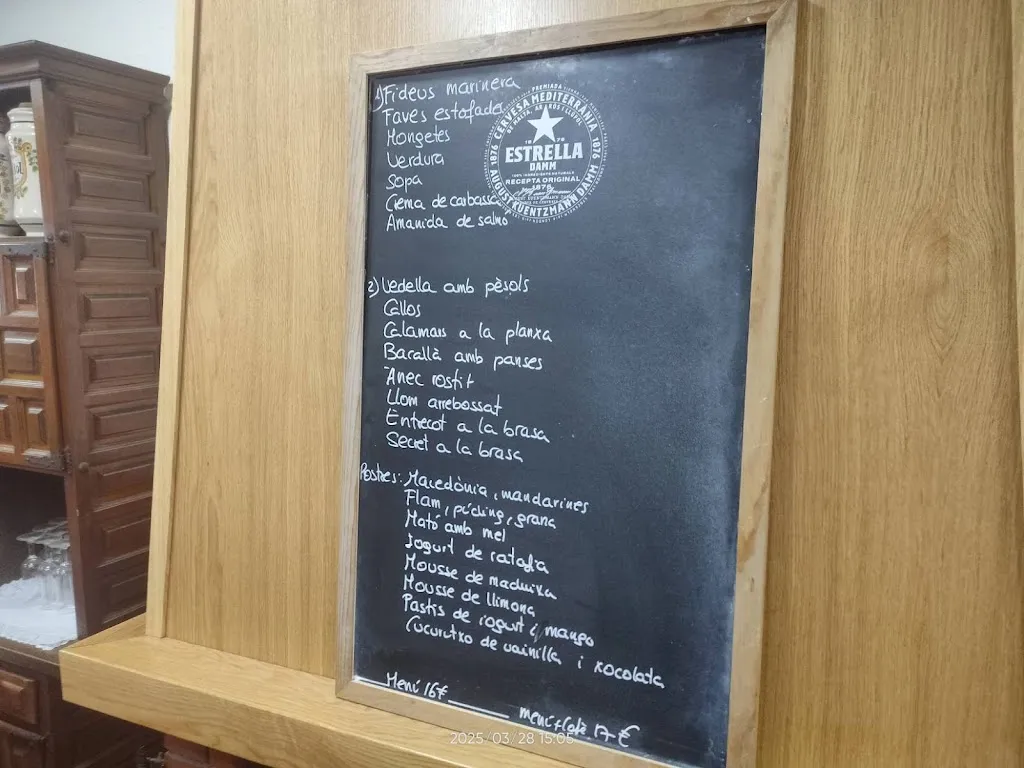 1) Fideus marinera
Faves estofades
Mongetes
Verdura
Sopa
Crema de carbassó
Amanida de salmó
PREMIADA
CERVESA MEDITERRÀNIA
1876
1876
ESTRELLA
DAMM
100% INGREDIENTS NATURALS
RECEPTA ORIGINAL
1876
AUGUST KUENTZMANN DAMM
2) Vedella amb pèsols
Callos
Calamars a la planxa
Bacallà amb panses
Ànec rostit
Llom arrebossat
Entrecot a la brasa
Secret a la brasa
Postres: Macedònia, mandarines
Flam, púding, grana
Mató amb mel
Iogurt de ratafia
Mousse de maduixa
Mousse de llimona
Pastis de iogurt i mango
Cucurutxo de vainilla i xocolata
Menú 16€
menú + Cafè 17 €
2025/03/28 15:05